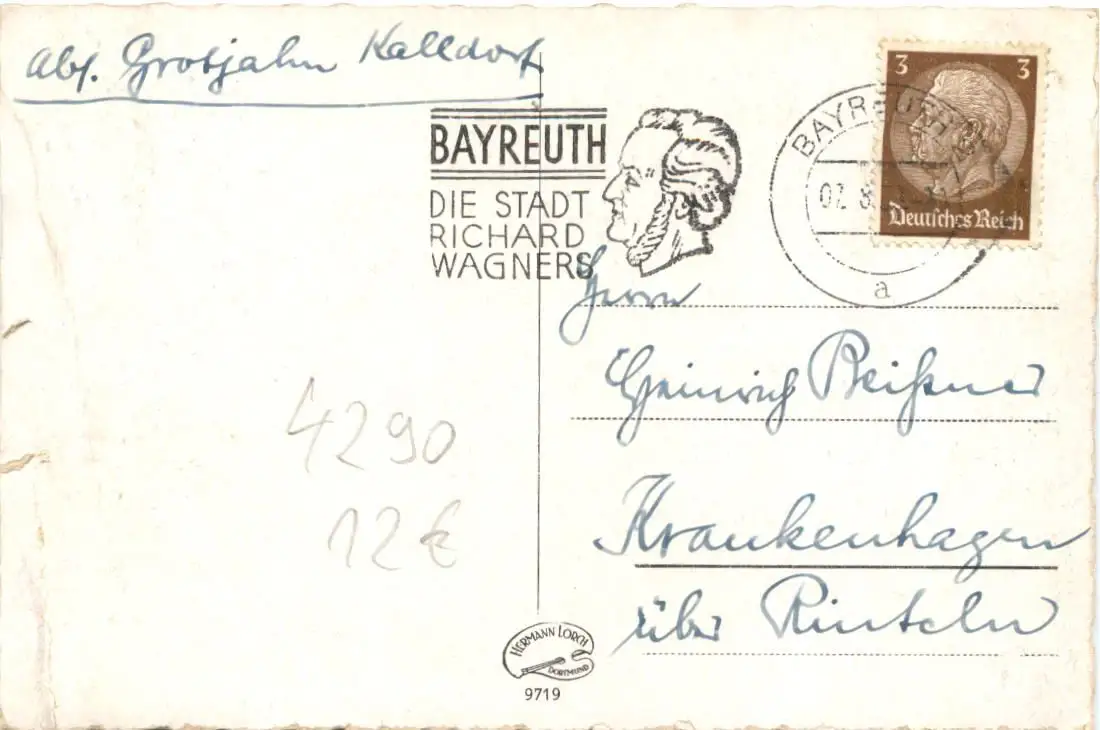 Abs. Grotjahn Kalldorf
BAYREUTH
DIE STADT
RICHARD
WAGNERS
BAYREUTH
a
3 3
Deutsches Reich
Herrn
Heinrich Beißner
Krankenhagen
über Rinteln
4290
12€
HERMANN LORCH
DORTMUND
9719